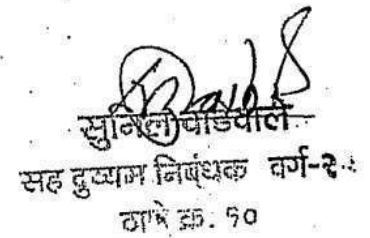 सुनिल वाडवाले
सह दुय्यम निबंधक वर्ग-२
ठाणे क्र. १०